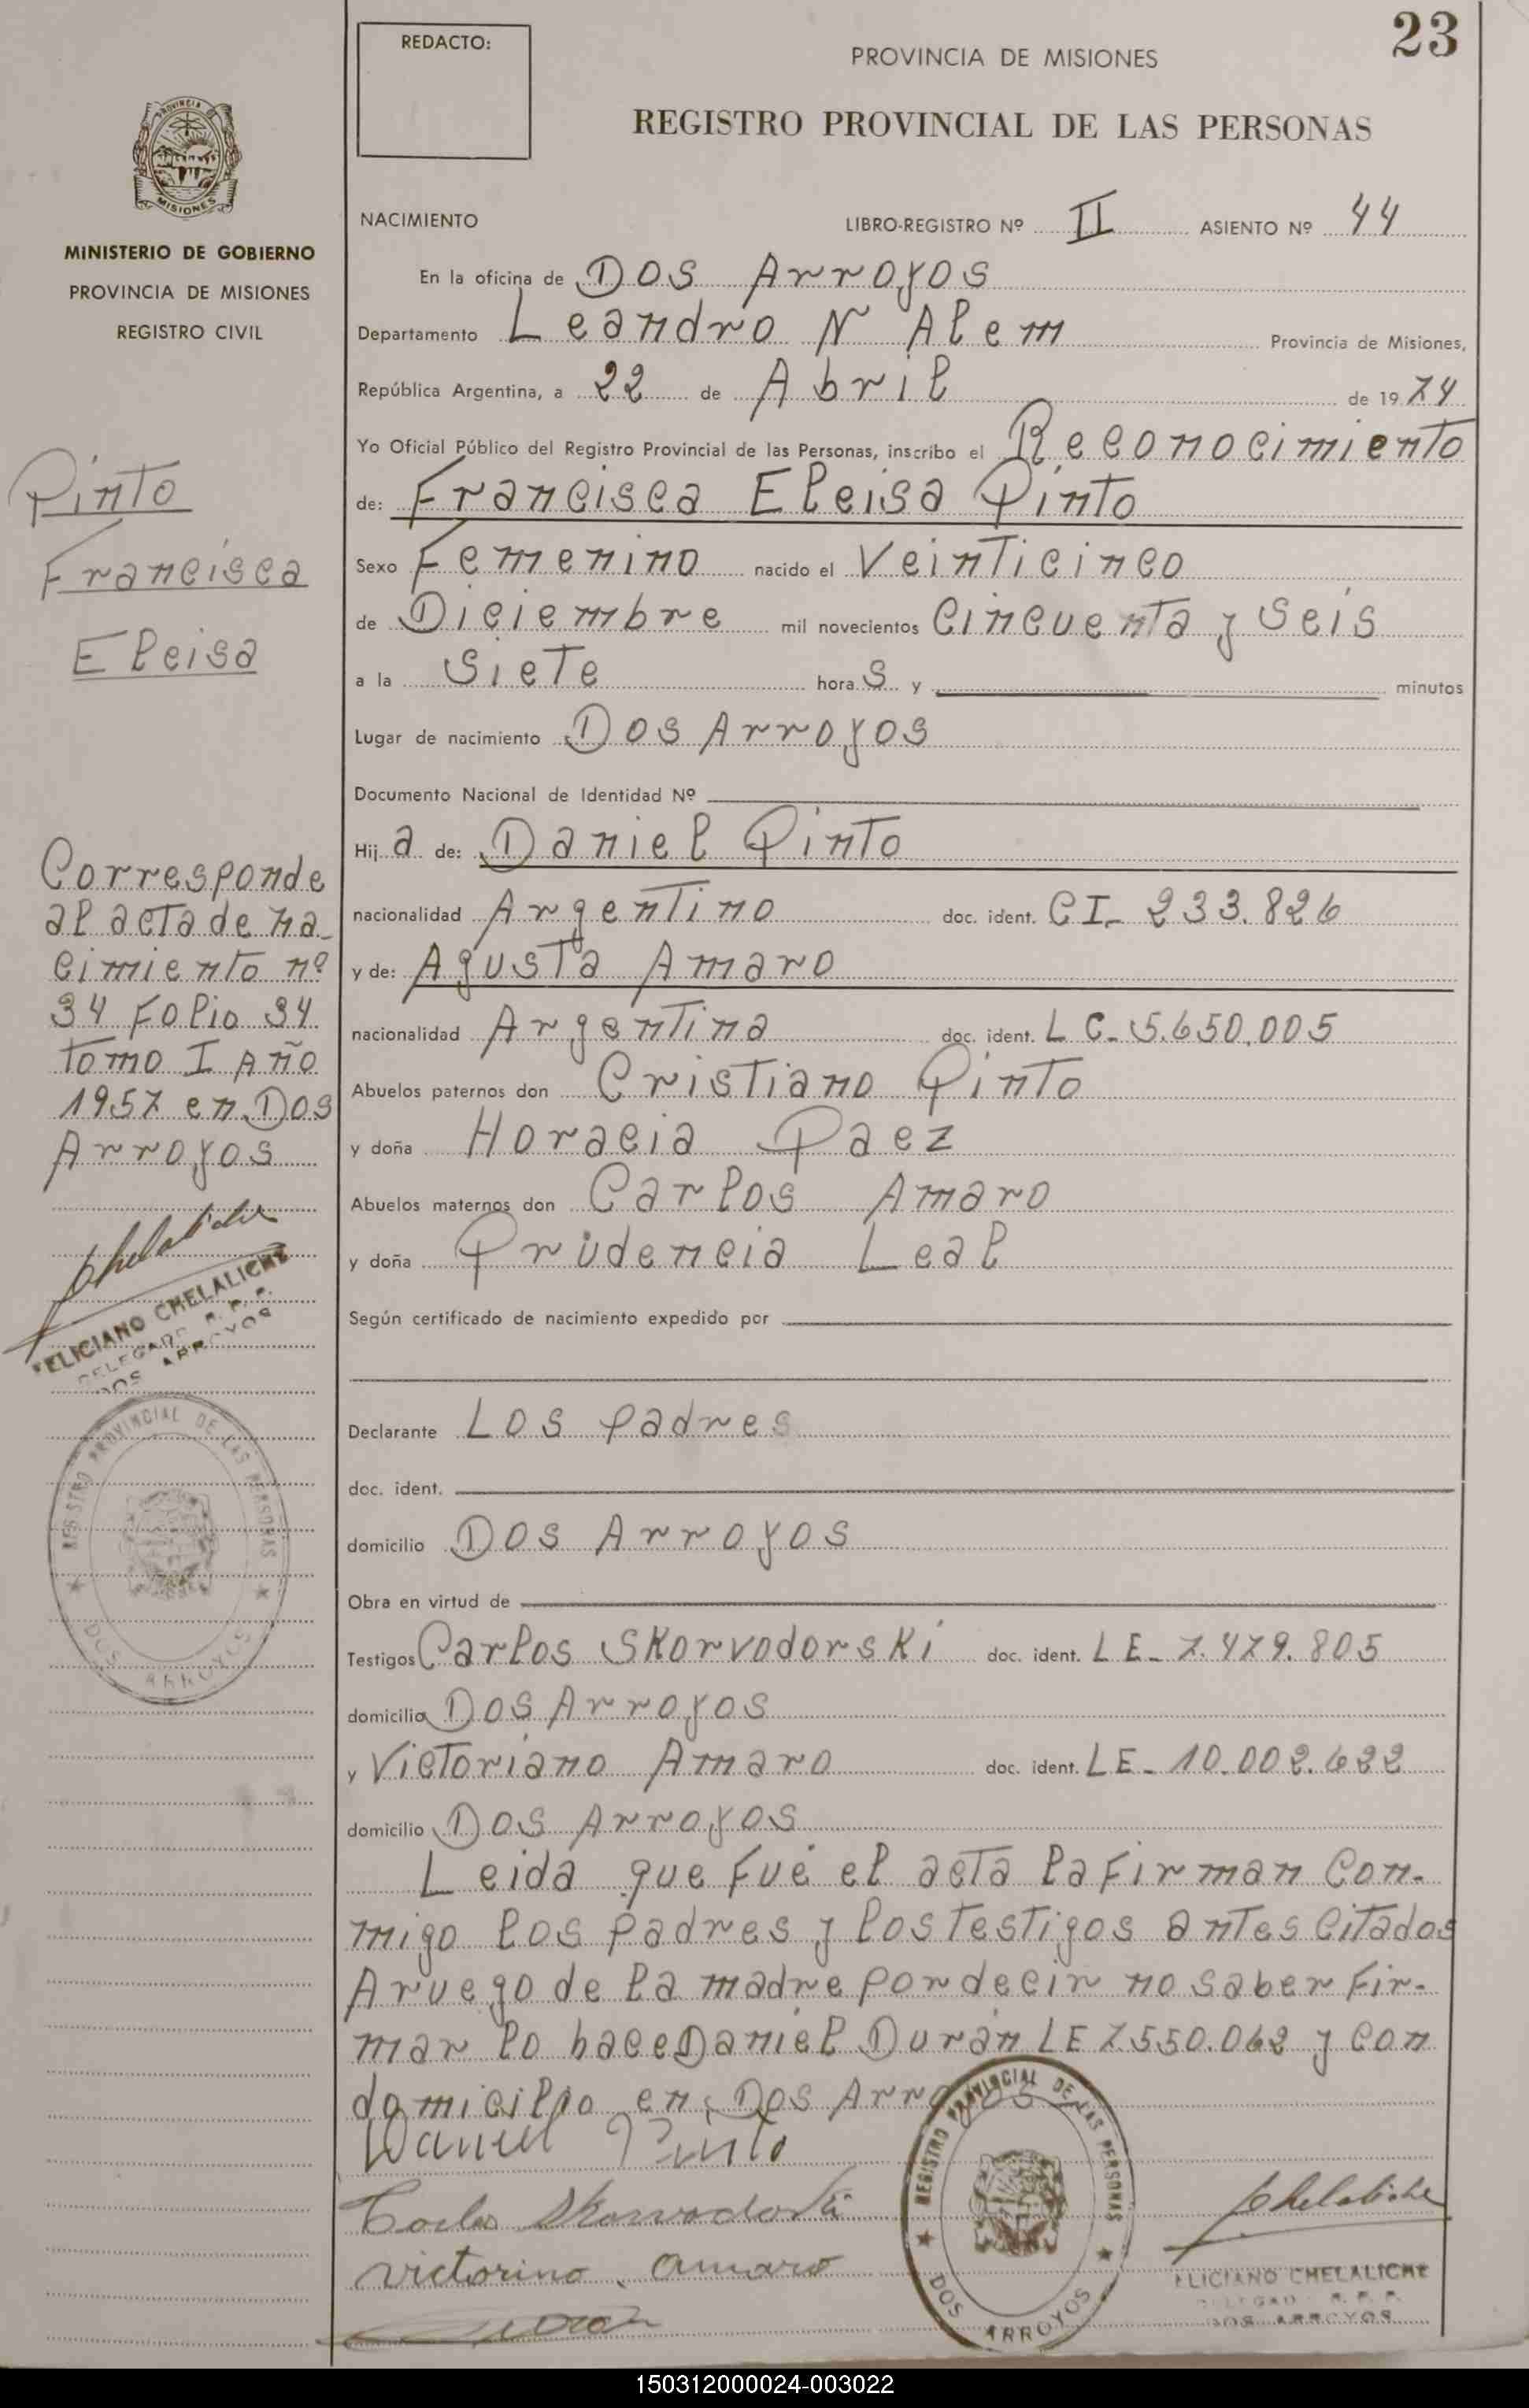 23
REDACTO:
PROVINCIA DE MISIONES
REGISTRO PROVINCIAL DE LAS PERSONAS
PROVINCIA
MISIONES
MINISTERIO DE GOBIERNO
PROVINCIA DE MISIONES
REGISTRO CIVIL
NACIMIENTO LIBRO-REGISTRO Nº II ASIENTO Nº 44
En la oficina de Dos Arroyos
Departamento Leandro N Alem Provincia de Misiones,
República Argentina, a 22 de Abril de 1974
Yo Oficial Público del Registro Provincial de las Personas, inscribo el Reconocimiento
de: Francisca Eleisa Pinto
Sexo Femenino nacido el Veinticinco
de Diciembre mil novecientos Cincuenta y seis
a la siete horas y minutos
Lugar de nacimiento Dos Arroyos
Documento Nacional de Identidad Nº
Hija de: Daniel Pinto
nacionalidad Argentino doc. ident. CI- 233.826
y de: Agusta Amaro
nacionalidad Argentina doc. ident. LC- 5.650.005
Abuelos paternos don Cristiano Pinto
y doña Horacia Paez
Abuelos maternos don Carlos Amaro
y doña Prudencia Leal
Según certificado de nacimiento expedido por
Declarante Los padres
doc. ident.
domicilio Dos Arroyos
Obra en virtud de
Testigos Carlos Skorvodorski doc. ident. LE- 7.479.805
domicilio Dos Arroyos
y Victoriano Amaro doc. ident. LE- 10.002.622
domicilio Dos Arroyos
Leida que fué el acta la firman con-
migo los padres y los testigos antes citados
Aruego de la madre por decir no saber fir-
mar lo hace Daniel Durán LE 7.550.062 y con
domicilio en Dos Arroyos
Daniel Pinto
Carlos Skorvodorski
victorino amaro
Duran
REGISTRO PROVINCIAL DE LAS PERSONAS
DOS ARROYOS
Chelaliche
FELICIANO CHELALICHE
DELEGADO R. P. P.
DOS ARROYOS
Pinto
Francisca
Eleisa
Corresponde
al acta de na-
cimiento nº
34 Folio 34
Tomo I Año
1957 en Dos
Arroyos
Chelaliche
FELICIANO CHELALICHE
DELEGADO R. P. P.
DOS ARROYOS
REGISTRO PROVINCIAL DE LAS PERSONAS
DOS ARROYOS
150312000024-003022